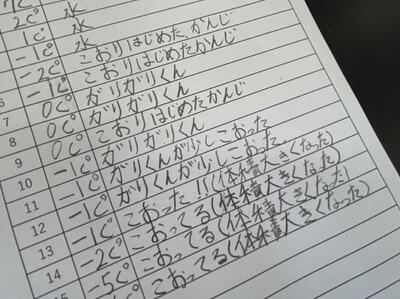 7C°
2C° 水
1C° 水
-1C° 水
-2C° こおりはじめた、かんじ
6 -1C° こおりはじめたかんじ
7 0C° ガリガリくん
8 0C° ガリガリくん
9 0C° こおりはじめたかんじ
10 -1C° ガリガリくん
11 -1C° ガリくんが少しこおった
12 -1C° ガリくんが少しこおった
13 -1C° こおった!!(体積大きくなった)
14 -2C° こおってる(体積大きくなった)
15 -5C° こおってる(体積大きくなった)
C° こおってる(体積大きくなった)